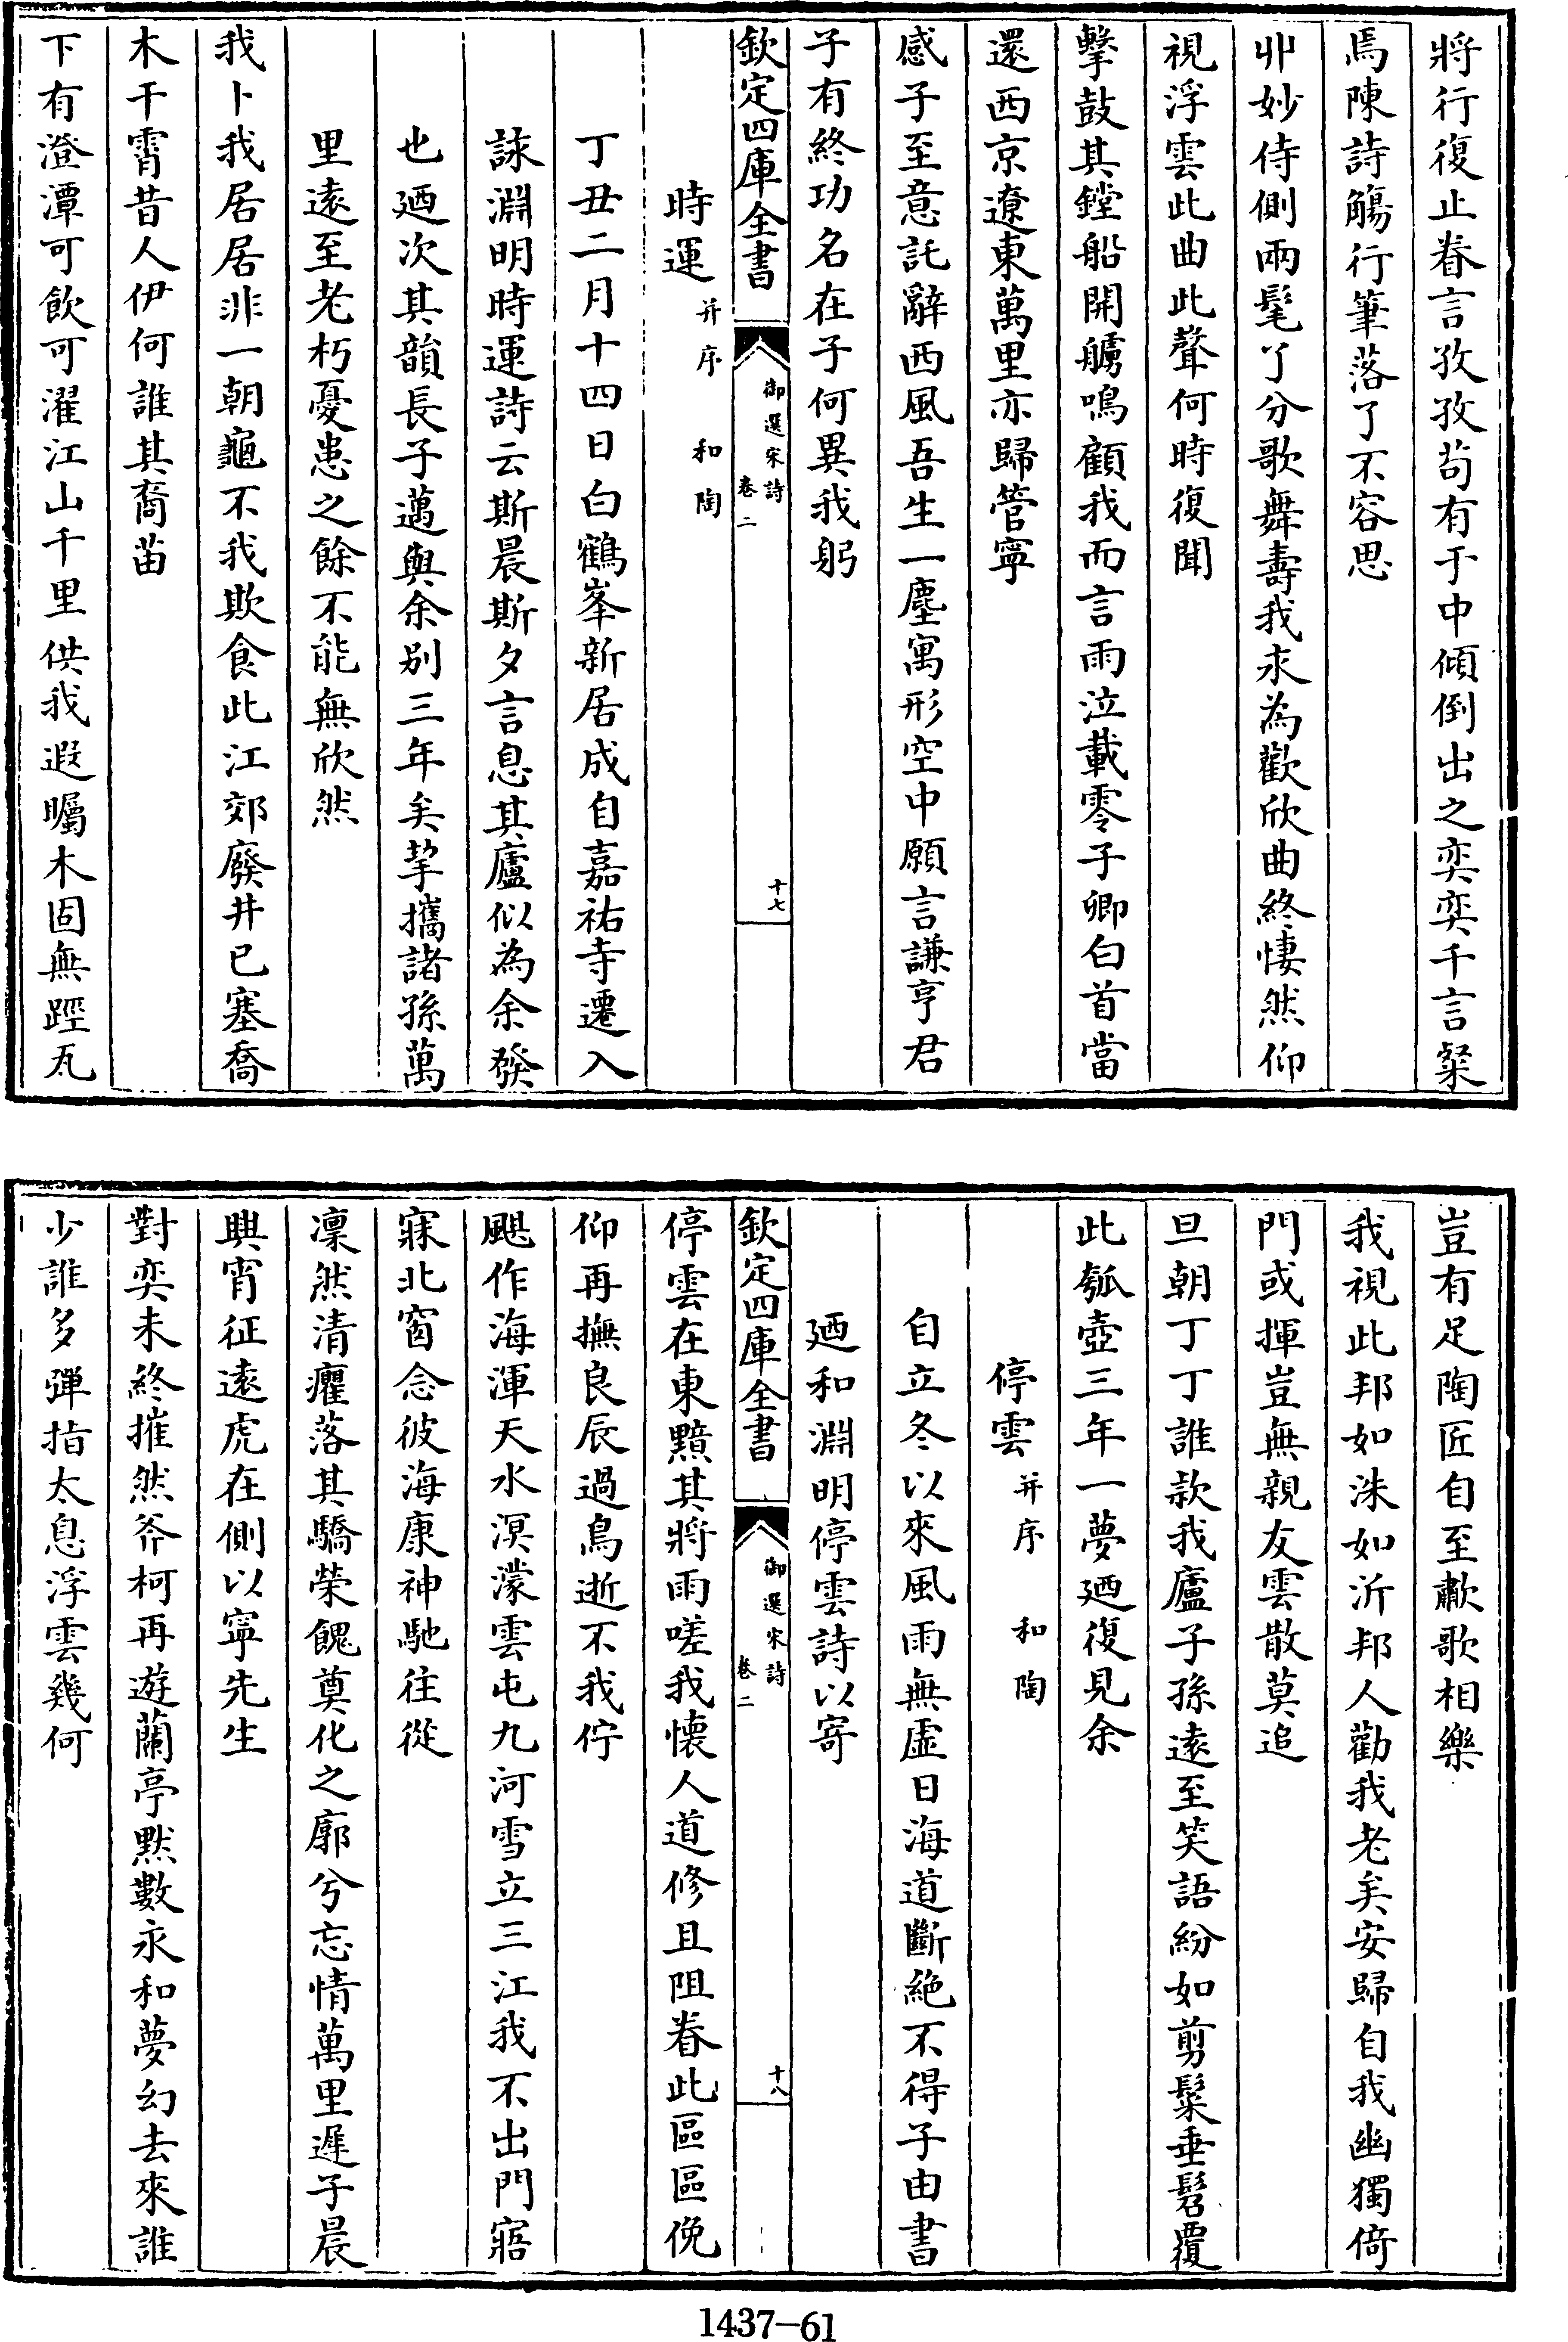 將行復止眷言孜孜苟有于中傾倒出之奕奕千言粲
焉陳詩觴行筆落了不容思
丱妙侍側兩髦丫分歌舞壽我永為歡欣曲終悽然仰
視浮雲此曲此聲何時復聞
擊鼓其鏜船開艣鳴顧我而言雨泣載零子卿白首當
還西京遼東萬里亦歸管寧
感子至意託辭西風吾生一塵寓形空中願言謙亨君
子有終功名在子何異我躬
欽定四庫全書
御選宋詩
卷二
十七
時運 并序 和陶
丁丑二月十四日白鶴峯新居成自嘉祐寺遷入
詠淵明時運詩云斯晨斯夕言息其廬似為余發
也廼次其韻長子邁與余别三年矣挈攜諸孫萬
里遠至老朽憂患之餘不能無欣然
我卜我居居非一朝龜不我欺食此江郊廢井已塞喬
木干霄昔人伊何誰其裔苗
下有澄潭可飲可濯江山千里供我遐矚木固無脛瓦
豈有足陶匠自至歗歌相樂
我視此邦如洙如沂邦人勸我老矣安歸自我幽獨倚
門或揮豈無親友雲散莫追
旦朝丁丁誰款我廬子孫遠至笑語紛如剪髮垂髫覆
此瓠壺三年一夢廼復見余
停雲 并序 和陶
自立冬以來風雨無虛日海道斷絶不得子由書
廼和淵明停雲詩以寄
欽定四庫全書
御選宋詩
卷二
十八
停雲在東黯其將雨嗟我懷人道修且阻眷此區區俛
仰再撫良辰過鳥逝不我佇
颶作海渾天水溟濛雲屯九河雪立三江我不出門寤
寐北窗念彼海康神馳往從
凜然清癯落其驕榮餽奠化之廓兮忘情萬里遲子晨
興宵征遠虎在側以寧先生
對奕未終摧然斧柯再遊蘭亭默數永和夢幻去來誰
少誰多彈指太息浮雲幾何
1437—61